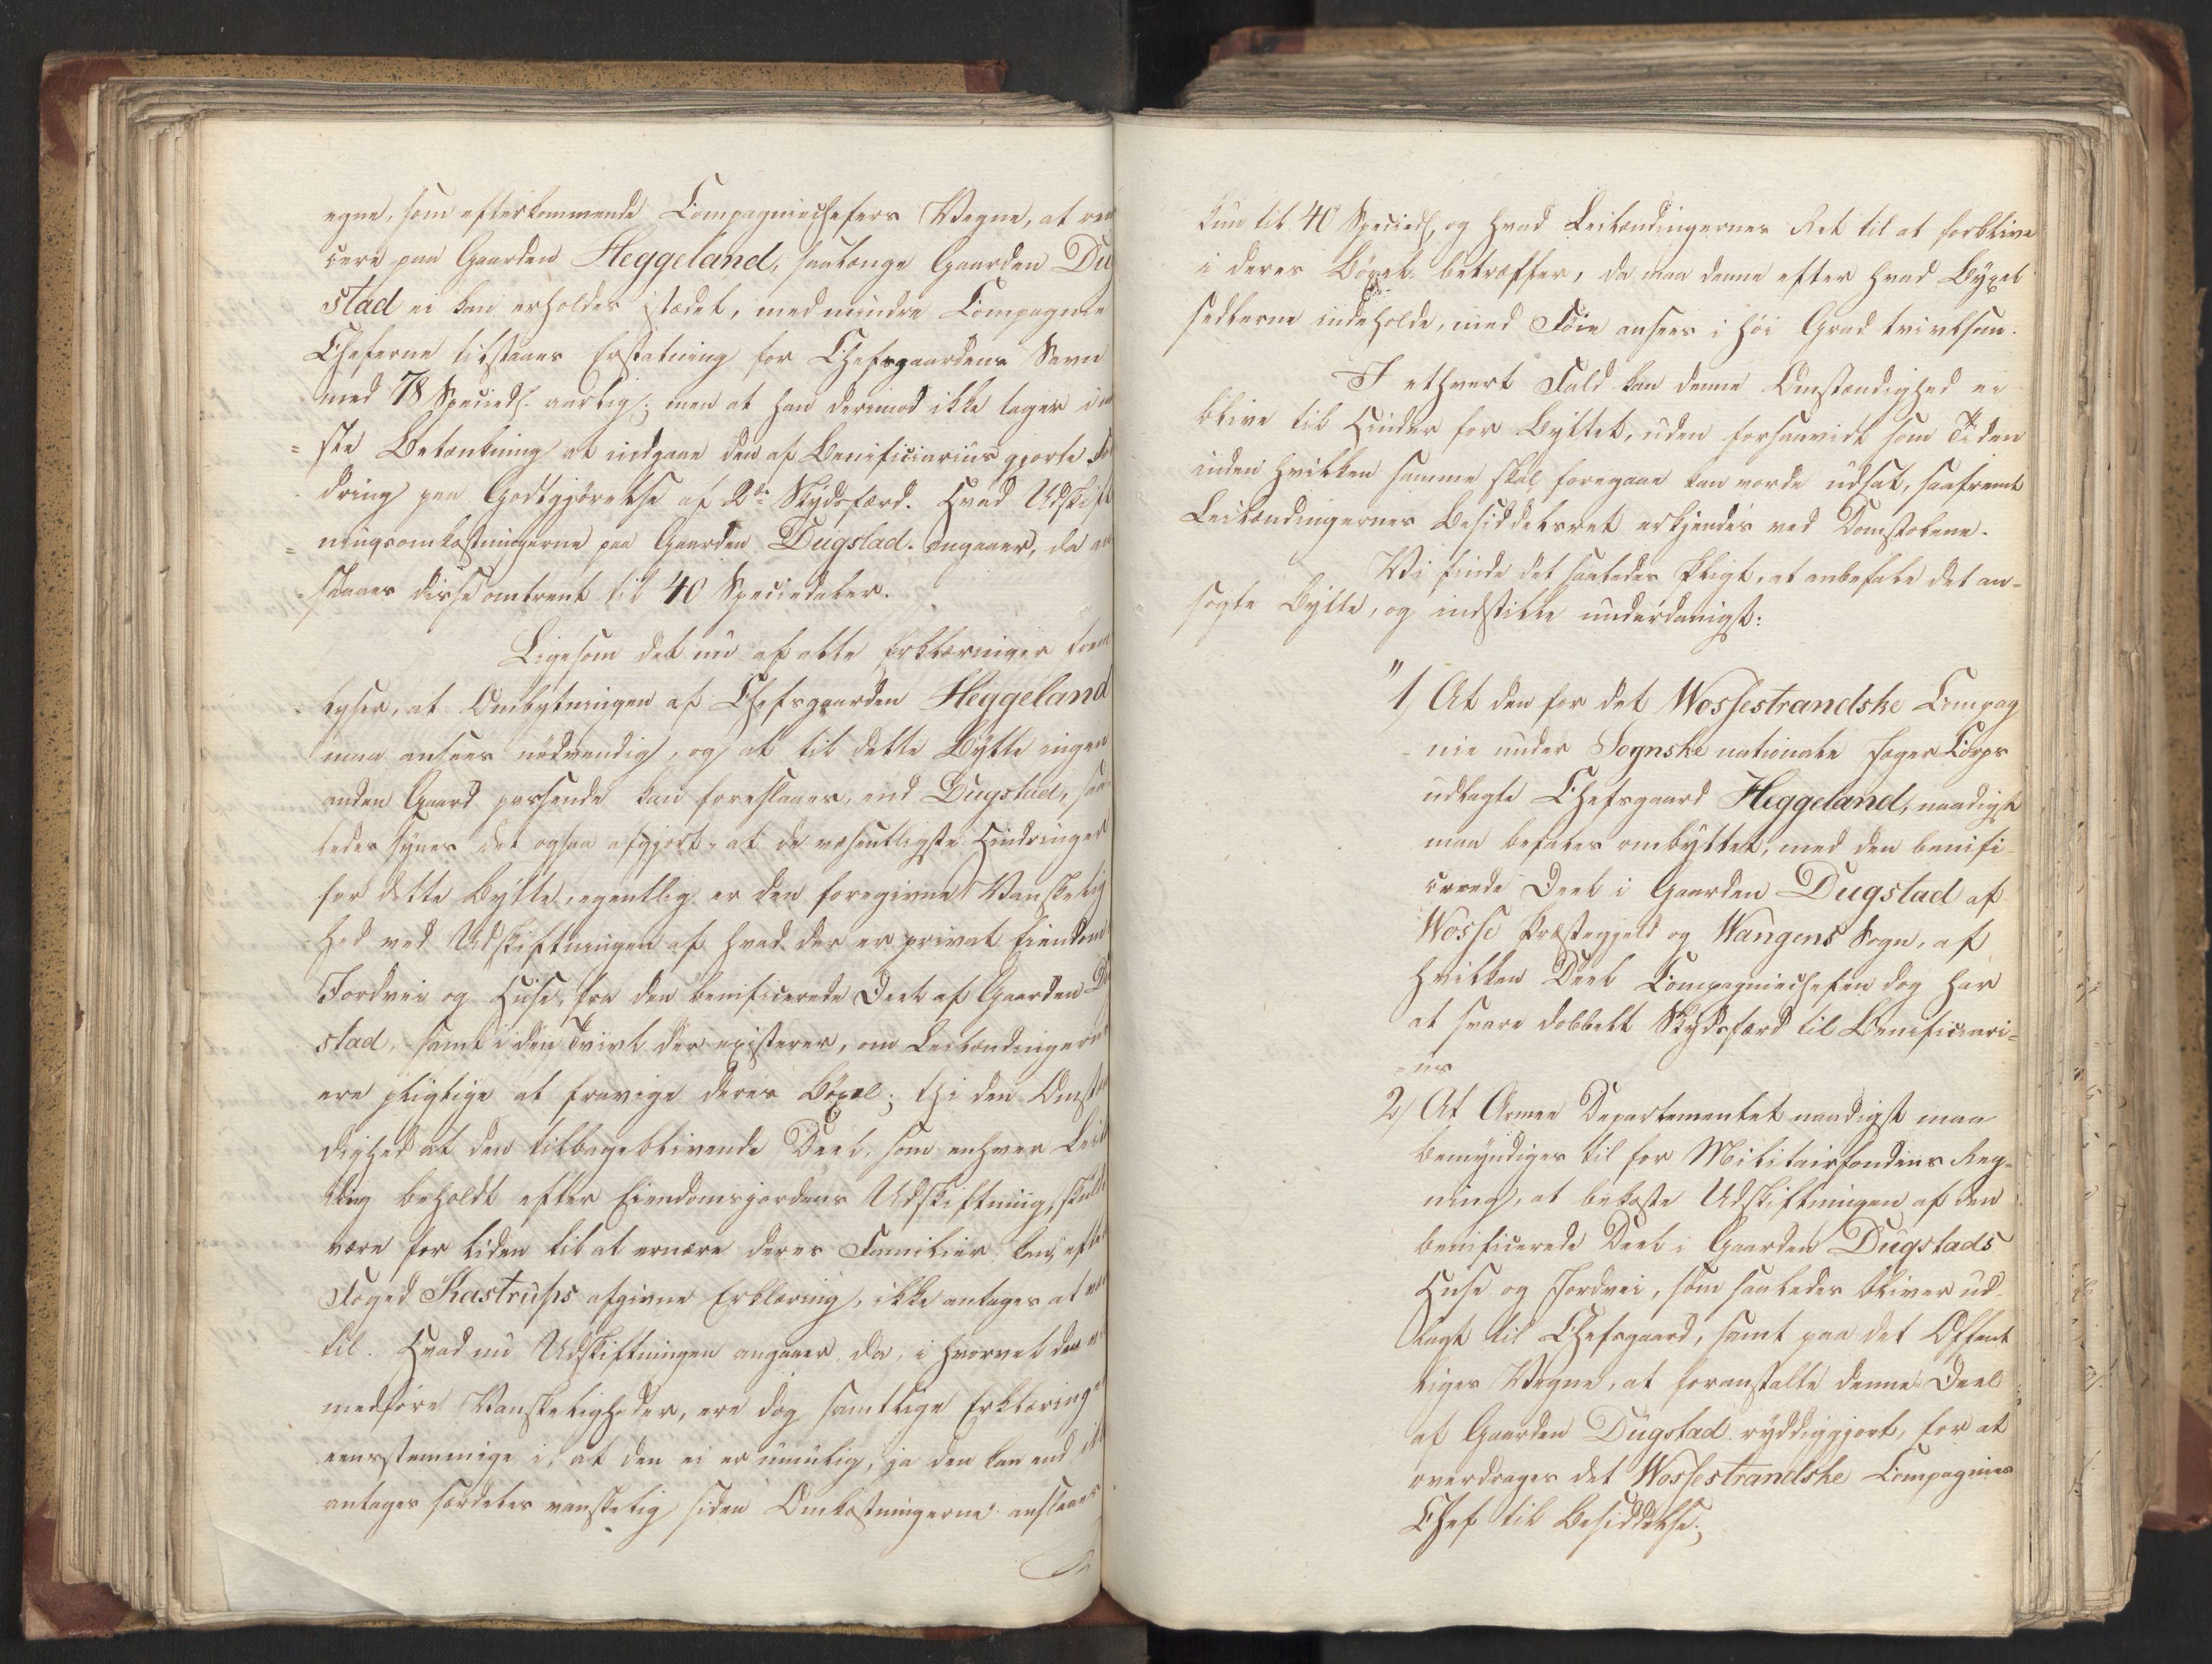 egne, som efterkommende Compagniechefers Vegne, at ren
cere paa Gaarden Heggeland, saalænge Gaarden Du
stad ei kan erholdes istedet, med mindre Compagnie
Cheferne tilstaaes Erstatning for Chefsgaardens Savn
med 78 Specied. aarlig; men at han derimod ikke tager i
= ste Betænkning at indgaae den af Benificiarius gjorte
dring paa Godtgjørelse af 2de Skydsfærd. Hvad Udskift
= ningsomkostningerne paa Gaarden Dugstad angaaer, da an
slaaes disse omtrent til 40 Speciedaler.
Ligesom det nu af alle Erklæringer frem
lyser, at Ombytningen af Chefsgaarden Heggeland
maa ansees nödvendig, og at til dette Bytte ingen
anden Gaard passende kan foreslaaes, end Dugstad, saa
ledes synes det ogsaa afgjort, at de væsentligste Hindringer
for dette Bytte, egentlig er den foregivne Vanskelig
hed ved Udskiftningen af hvad der er privat Eiendom
Jordvei og Huse, fra den benificerede Deel af Gaarden Du
stad, samt i den Tvivl der existerer, om Leilændingerne
ere pligtige at fravige deres Böxel; thi den Omstæn
dighed at den tilbageblivende Deel, som enhver Leilæn
ding beholdt efter Eiendomsjordens Udskiftning, skulde
være for liden til at ernære deres Familier kan, efter
Foged Kastrups afgivne Erklæring, ikke antages at være
til. Hvad nu Udskiftningen angaaer, da, i hvorvel den
medföre Vanskeligheder, ere dog samtlige Erklæringer
eensstemmige i, at den ei er umulig, ja den kan end ikke
antages særdeles vanskelig siden Omkostningerne anslaaes
kun til 40 Specied, og hvad Leilændingernes Ret til at forblive
i deres Böxel betræffer, da maa denne efter hvad Byxel
sedlerne indeholde, med Föie ansees i höi Grad tvivlsom.
I ethvert Fald kan denne Omstændighed ei
blive til Hinder for Byttet, uden forsaavidt som Tiden
inden hvilken samme skal foregaae kan vorde udsat, saafremt
Leilændingernes Besiddelsret erkjendes ved Domstolene.
Vi finde det saaledes Pligt, at anbefale det an-
sögte Bytte, og indstille underdanigst:
"1) At den for det Wossestrandske Compag
nie under Sognske nationale Jæger Corps
udlagte Chefsgaard Heggeland, naadigst
maa befales ombyttet, med den benifi-
cerede Deel i Gaarden Dugstad af
Wosse Præstegjeld og Wangens Sogn, af
hvilken Deel Compagniechefen dog har
at svare dobbelt Skydsfærd til Benificiari=
= us
2) At Armee Departementet naadigst maa
bemyndiges til for Militairfondens Reg-
ning, at bekoste Udskiftningen af den
benificerede Deel i Gaarden Dugstads
Huse og Jordvei, som saaledes bliver ud-
lagt til Chefsgaard, samt paa det Offent
liges Vegne, at foranstalte denne Deel
af Gaarden Dugstad ryddiggjort, for at
overdrages det Wossestrandske Compagnies
Chef til Besiddelse;